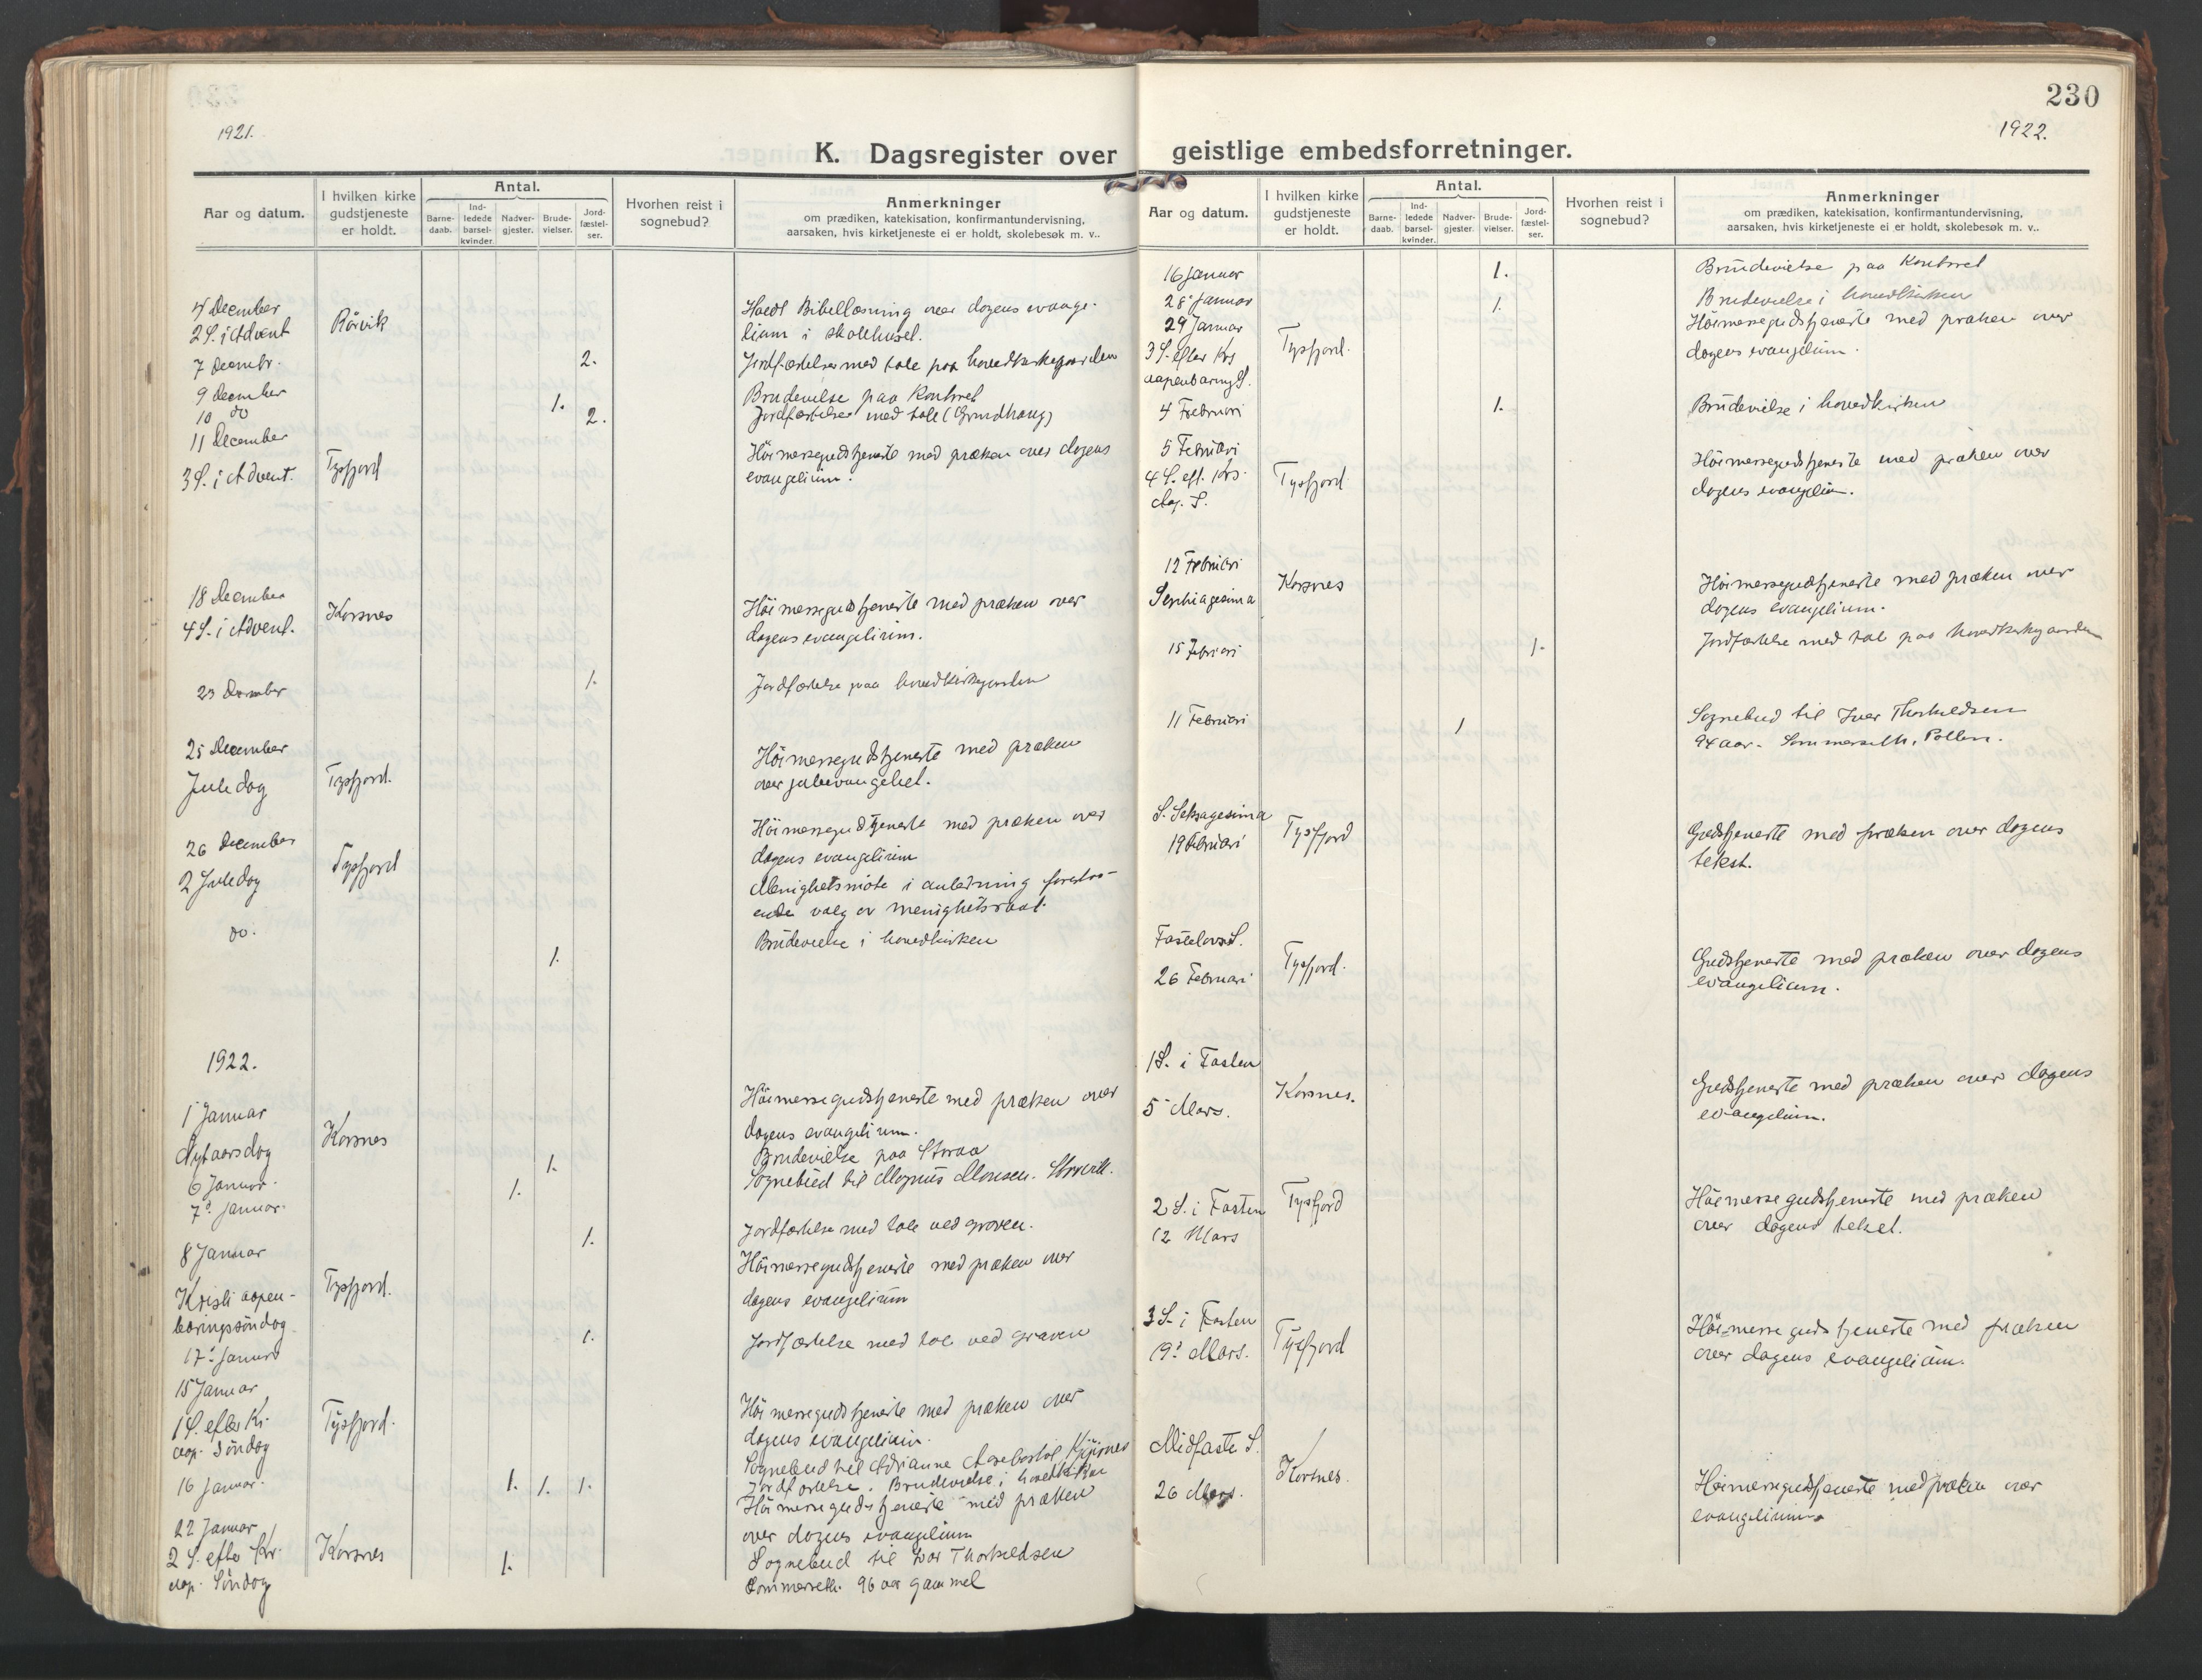 230
1921.
1922.
K. Dagsregister over geistlige embedsforretninger.
Aar og datum.
I hvilken kirke gudstjeneste er holdt.
Antal.
Barne-daab.
Ind-ledede barsel-kvinder.
Nadver-gjester.
Brude-vielser.
Jord-fæstel-ser.
Hvorhen reist i sognebud?
Anmerkninger
om prædiken, katekisation, konfirmantundervisning,
aarsaken, hvis kirketjeneste ei er holdt, skolebesøk m. v..
4 December
2 S. i Advent Rörvik Holdt Bibellæsning over dagens evange-
lium i skolehuset.
7 Decembr. 2. Jordfæstelse med tale paa hovedkirkegaarden
9 December 1. Brudevielse paa Kontoret
10 do 2. Jordfæstelse med tale (Grundhaug)
11 December
3 S. i Advent. Tysfjord Höimessegudstjeneste med præken over dagens
evangelium.
18 December
4 S. i Advent. Korsnes Höimessegudstjeneste med præken over
dagens evangelium.
23 December 1. Jordfæstelse paa hovedkirkegaarden
25 December
Juledag Tysfjord. Höimessegudstjeneste med præken
over juleevangeliet.
26 December
2 Juledag Tysfjord Höimessegudstjeneste med præken over
dagens evangelium
Menighetsmöte i anledning forestaa-
ende valg av menighetsraad.
do. 1. Brudevielse i hovedkirken
1922.
1 Januar
Nytaarsdag Korsnes Höimessegudstjeneste med præken over
dagens evangelium.
6 Januar. 1. Brudevielse paa Storaa
7 Januar. 1. Sognebud til Magnus Monsen. Storvik.
1. Jordfæstelse med tale ved graven.
8 Januar
Kristi aapen-
baringssöndag Tysfjord. Höimessegudstjeneste med præken over
dagens evangelium
17 Januar 1. Jordfæstelse med tale ved graven
15 Januar
1 S. efter Kr.
aap. Söndag Tysfjord. Höimessegudstjeneste med præken over
dagens evangelium.
16 Januar. 1. 1. 1. Sognebud til Adrianne
Jordfæstelse. Brudevielse i hovedkirken
22 Januar
2 S. efter Kr.
aap. Söndag Korsnes Höimessegudstjeneste med præken
over dagens evangelium
1. Sognebud til Ivar Thorkildsen
Sommerseth. 96 aar gammel
Aar og datum.
I hvilken kirke gudstjeneste er holdt.
Antal.
Barne-daab.
Ind-ledede barsel-kvinder.
Nadver-gjester.
Brude-vielser.
Jord-fæstel-ser.
Hvorhen reist i sognebud?
Anmerkninger
om prædiken, katekisation, konfirmantundervisning,
aarsaken, hvis kirketjeneste ei er holdt, skolebesøk m. v..
16 Januar 1. Brudevielse paa Kontoret
28 Januar 1. Brudevielse i hovedkirken
29 Januar
3 S. efter Krs
aapenbaringS. Tysfjord. Höimessegudstjeneste med præken over
dagens evangelium.
4 Februari 1. Brudevielse i hovedkirken
5 Februari
4 S. eft. Krs.
Aap. S. Tysfjord Höimessegudstjeneste med præken over
dagens evangelium.
12 Februari
Septuagesima Korsnes Höimessegudstjeneste med præken over
dagens evangelium.
15 Februari 1. Jordfæstelse med tale paa hovedkirkegaarden
11 Februari 1 Sognebud til Ivar Thorkildsen
94 aar. Sommerseth, Pollen.
S. Seksagesima
19 Februari Tysfjord Gudstjeneste med præken over dagens
tekst.
FastelavnsS.
26 Februari Tysfjord. Gudstjeneste med præken over dagens
evangelium.
1 S. i Fasten
5 Mars. Korsnes. Gudstjeneste med præken over dagens
evangelium.
2 S. i Fasten
12 Mars Tysfjord Höimessegudstjeneste med præken
over dagens tekst.
3 S. i Fasten
19 Mars. Tysfjord Höimessegudstjeneste med præken
over dagens evangelium.
Midfaste S.
26 Mars. Korsnes. Höimessegudstjeneste med præken over
evangelium.